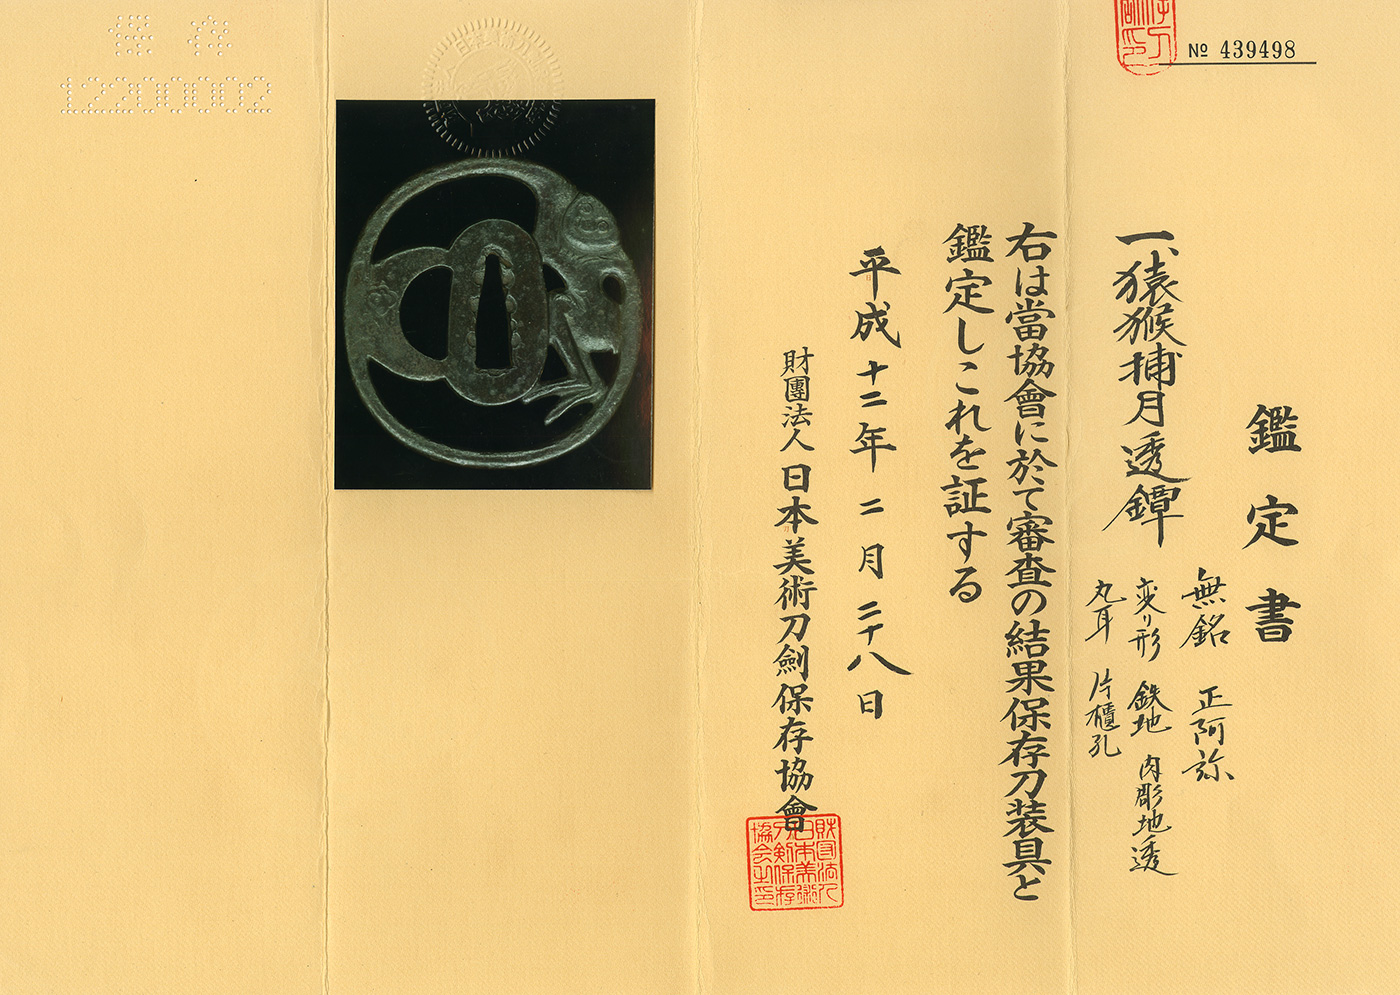 № 439498
鑑定書
一、猿猴捕月透鐔
無銘 正阿弥
変り形 鉄地 肉彫地透
丸耳 片櫃孔
右は當協會に於て審査の結果保存刀装具と
鑑定しこれを証する
平成十二年二月二十八日
財團法人 日本美術刀劍保存協會
財団法人
日本美術
刀剣保存
協会之印
保存
12200002